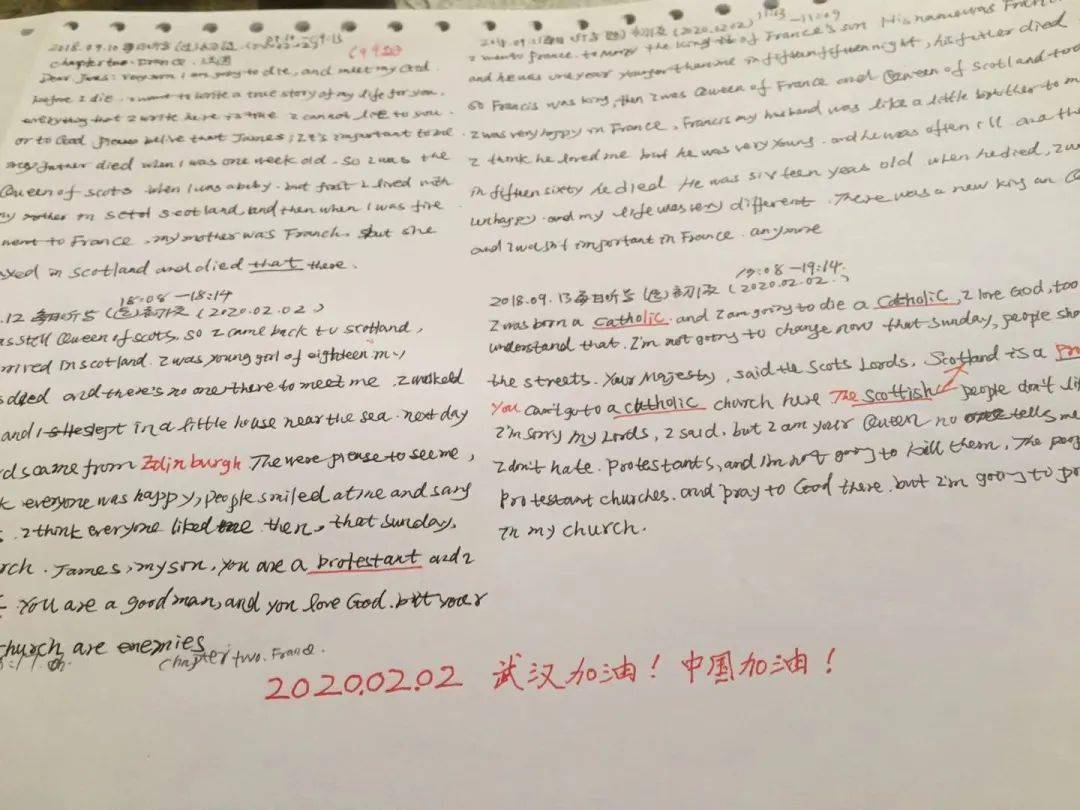 2018.09.10 每日听写
Chapter two. France. 法国
Dear James: my son I am going to die, and meet my God.
before I die. I want to write a true story of my life for you,
everything that I write here is true I cannot lie to you.
or to God. Please belive that James; It's important to me
my father died when I was one week old. So I was the
Queen of scots when I was a baby. but first I lived with
my mother in scotland, and then when I was five
went to France, my mother was Franch, but she
in Scotland and died that there.
2018.09.11 (2020.02.02) 11:03 - 11:09
I went to France. to marry the king of France's son His name was
and he was one year younger than me in fifteen fifty night, his father died
so Francis was king, then I was Queen of France and Queen of Scotland too
I was very happy in France, Francis my husband was like a little brother to
I think he loved me but he was very young. and he was often ill and
in fifteen sixty he died He was sixteen yeas old when he died, I
unhappy. and my life was very different. There was a new king an
and I wasn't important in France. anymore
18:08 - 18:14
.12 每日听写 (2020.02.02)
still Queen of scots, so I came back to scotland,
in scotland. I was young girl of eighteen my
died and there's no one there to meet me. I walked
and I slept in a little house near the sea. next day
came from Edinburgh The were please to see me,
everyone was happy, people smiled at me and sang
I think everyone liked me then, that sunday,
James, my son, you are a protestant and I
You are a good man, and you love God. but your
church are enemies
chapter two. France.
19:08 - 19:14.
2018.09.13 每日听写 (2020.02.02.)
I was born a catholic. and I am going to die a Catholic, I love God, too
understand that. I'm not going to change now that sunday, people
the streets. Your Majesty, said the Scots Lords, Scotland is a
You can't go to a catholic church here The Scottish people don't
I'm sorry my Lords, I said. but I am your Queen no one tells me
I don't hate. Protestants, and I'm not going to kill them, The
protestant churches. and pray to God there. but I'm going to
in my church.
2020.02.02 武汉加油！中国加油！